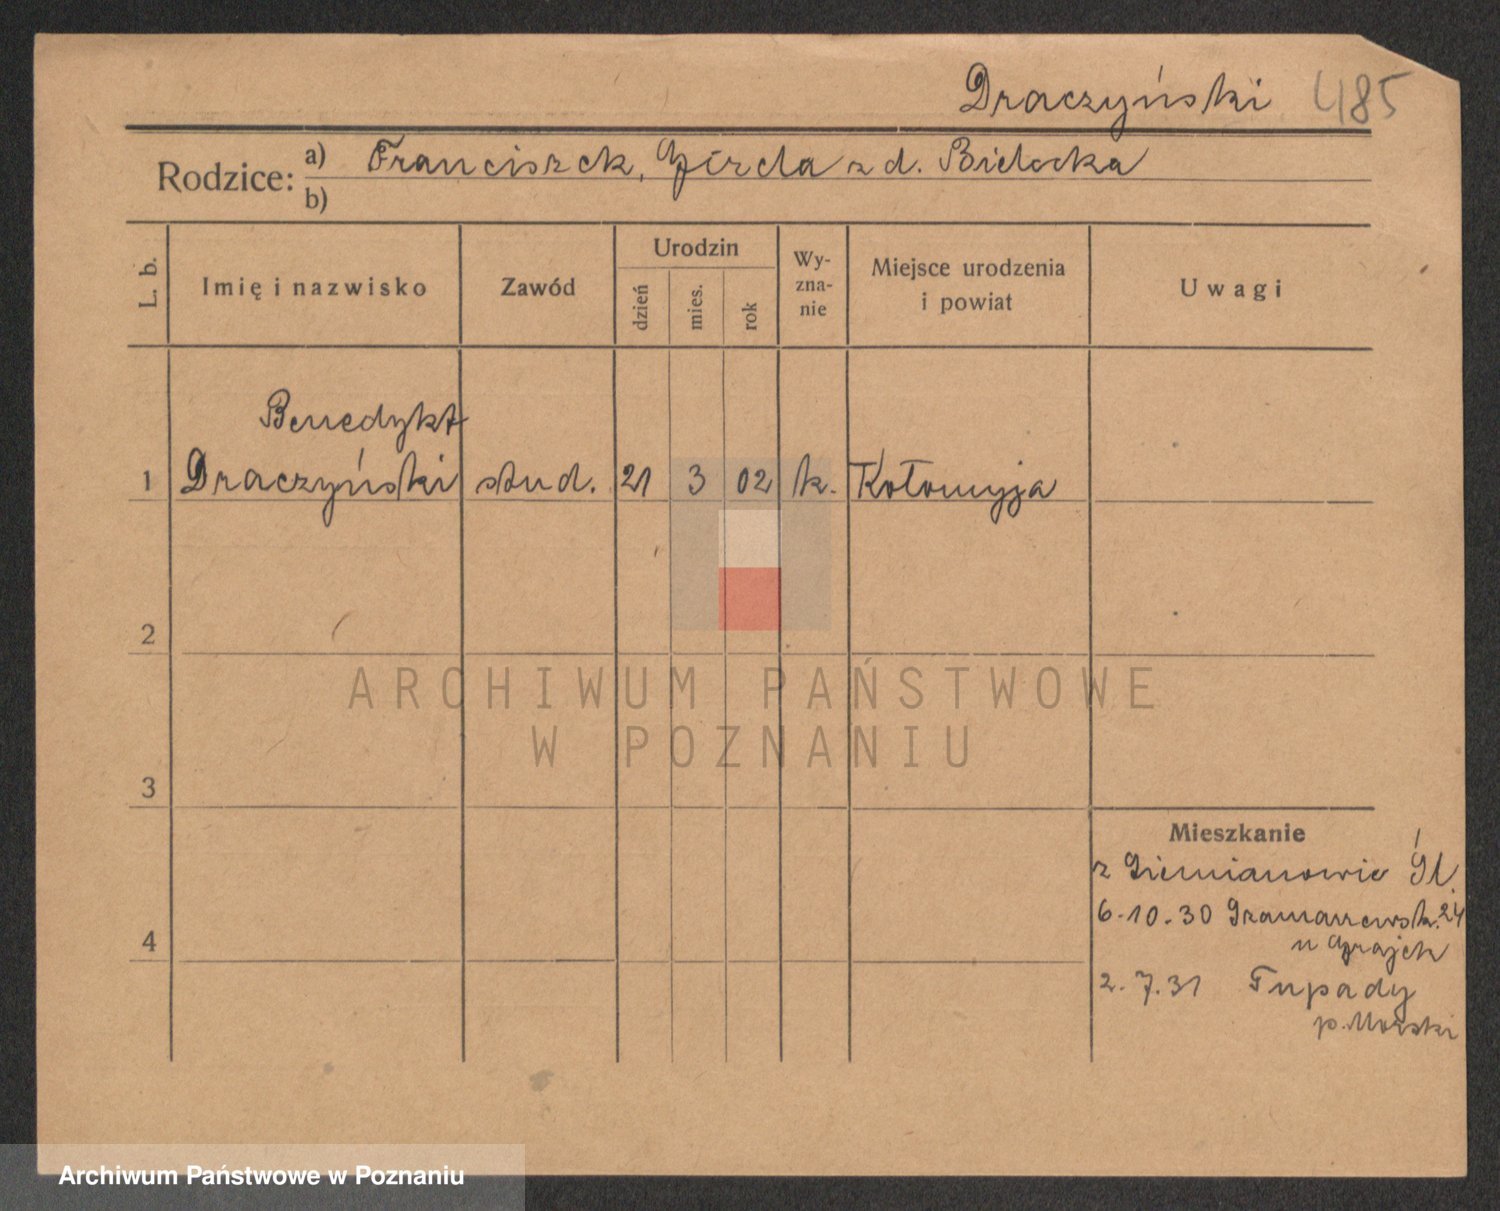 Draczyński 485
Rodzice: a) Franciszek, Gizela z d. Bielecka
b)
L. b.
Imię i nazwisko
Zawód
Urodzin
dzień
mies.
rok
Wy-
zna-
nie
Miejsce urodzenia
i powiat
Uwagi
Benedykt
1 Draczyński stud. 21 3 02 k. Kołomyja
2
3
4
Mieszkanie
z Siemianowic Śl.
6.10.30 24
u
2.7.31 Tupady
p. Morski
ARCHIWUM PAŃSTWOWE
W POZNANIU
Archiwum Państwowe w Poznaniu